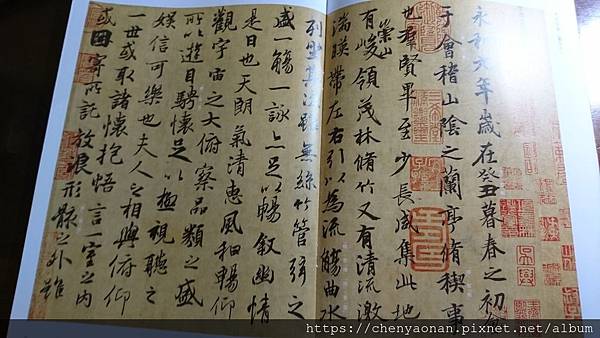 永和九年歲在癸丑暮春之初會
于會稽山陰之蘭亭脩稧事
也羣賢畢至少長咸集此地
有崇山峻領茂林脩竹又有清流激
湍暎帶左右引以為流觴曲水
列坐其次雖無絲竹管弦之
盛一觴一詠亦足以暢敘幽情
是日也天朗氣清惠風和暢仰
觀宇宙之大俯察品類之盛
所以遊目騁懷足以極視聽之
娛信可樂也夫人之相與俯仰
一世或取諸懷抱悟言一室之內
或因寄所託放浪形骸之外雖
https://chenyaonan.pixnet.net/album